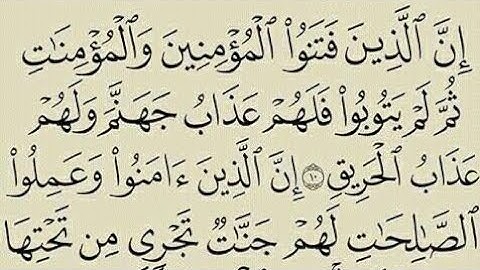 إِنَّ ٱلَّذِينَ فَتَنُوا۟ ٱلْمُؤْمِنِينَ وَٱلْمُؤْمِنَٰتِ
ثُمَّ لَمْ يَتُوبُوا۟ فَلَهُمْ عَذَابُ جَهَنَّمَ وَلَهُمْ
عَذَابُ ٱلْحَرِيقِ ١٠ إِنَّ ٱلَّذِينَ ءَامَنُوا۟ وَعَمِلُوا۟
ٱلصَّٰلِحَٰتِ لَهُمْ جَنَّٰتٌ تَجْرِى مِن تَحْتِهَا